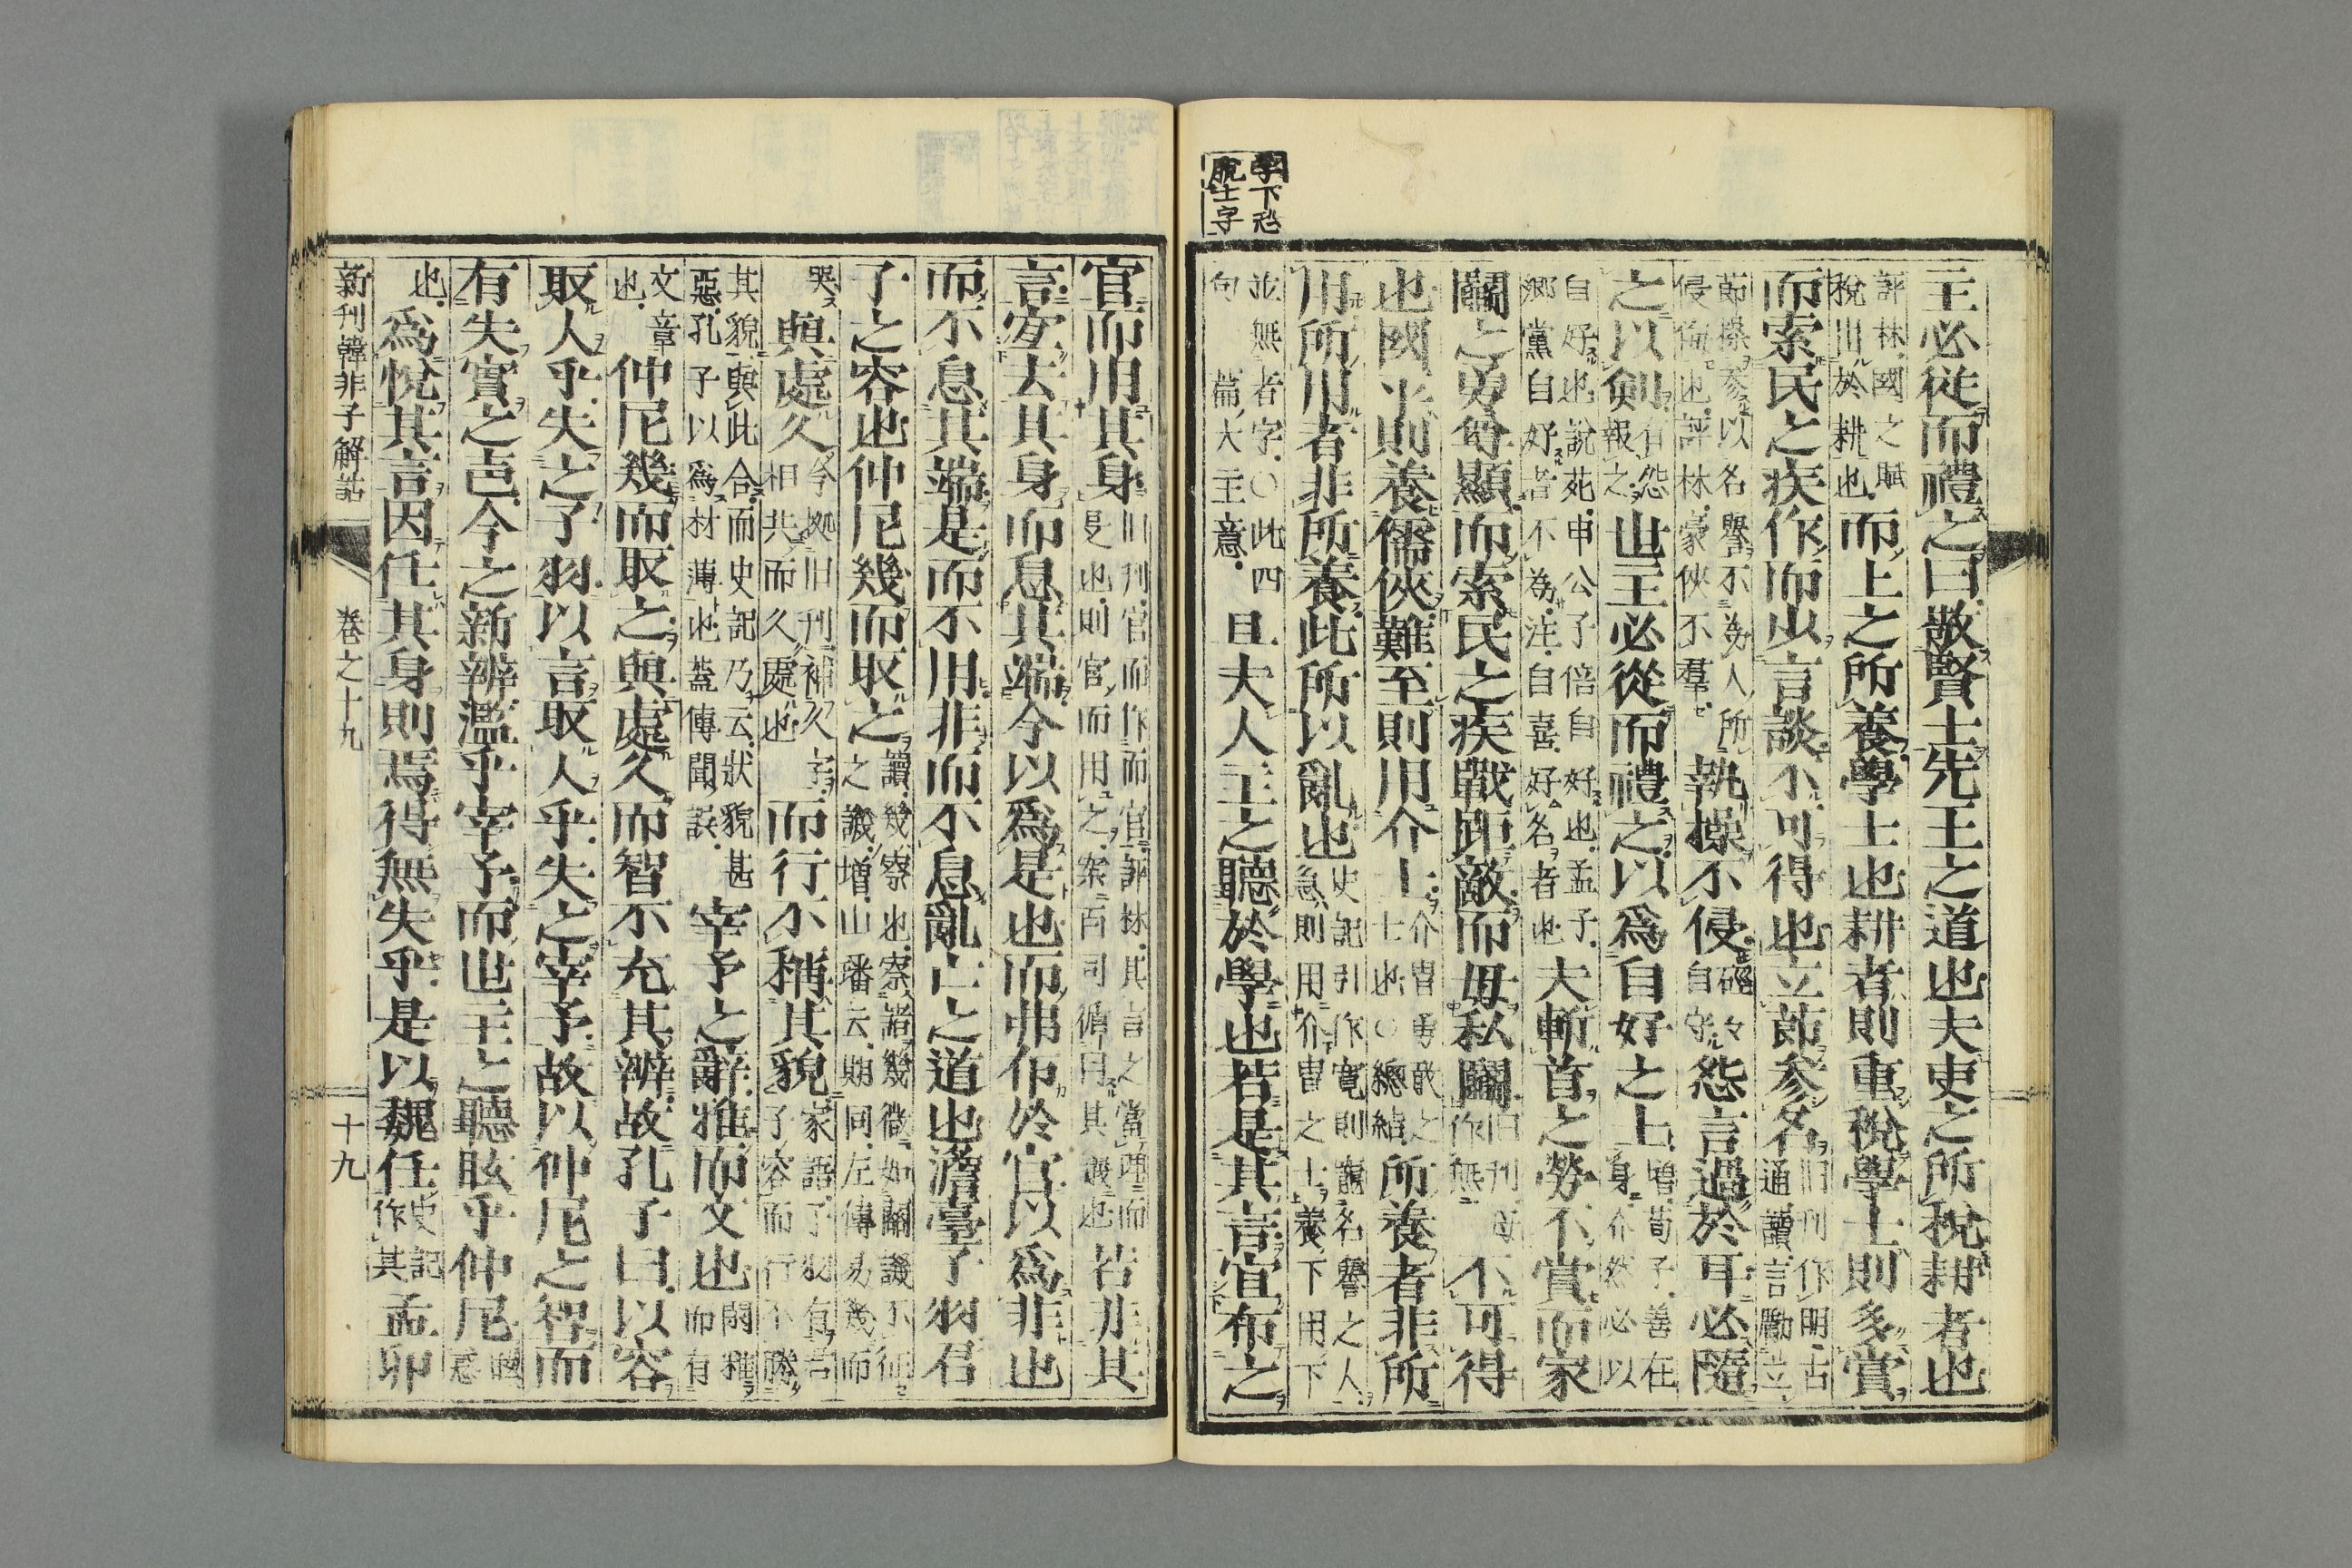 學下恐
脫士字
主必從而禮之曰敬賢士先王之道也夫吏之所稅耕者也
評林國之賦稅用於耕也而上之所養學士也耕者則重稅學士則多賞
而索民之疾作而少言談不可得也立節參名旧刊作明古通讀言勵立
節操參以名譽不為人所侵侮也評林豪俠不羣執操不侵硜々自守怨言過於耳必隨
之以劍有怨必報之世主必從而禮之以爲自好之士增荀子善在身介然必以
自好也說苑申公子倍自好也孟子鄉黨自好者不為注自喜好名者也夫斬首之勞不賞而家
鬬之勇尊顯而索民之疾戰距敵而毋私鬬旧刊毋作無不可得
也國平則養儒俠難至則用介士介冑勇敢之士也○總結所養者非所
用所用者非所養此所以亂也史記引作寬則養名譽之人急則用介冑之士養下用下
並無者字○此四句一篇大主意且夫人主之聽於學也若是其言宜布之
官而用其身旧刊官而作而官評林其言之當理而是也則官而用之案百司循用其議也若非其
言宜去其身而息其端今以爲是也而弗布於官以爲非也
而不息其端是而不用非而不息亂亡之道也澹臺子羽君
子之容也仲尼幾而取之讀幾察也察諸幾微如關譏不征之譏增山璠云期同左傳易幾而
哭與處久今拠旧刊補久字相共而久處也而行不稱其貌家語子羽有君子容而行不勝
其貌與此合而史記乃云狀貌甚惡孔子以爲材薄也蓋傳聞誤宰予之辭雅而文也閑雅而有
文章也仲尼幾而取之與處久而智不充其辨故孔子曰以容
取人乎失之子羽以言取人乎失之宰予故以仲尼之智而
有失實之声今之新辨濫乎宰予而世主之聽眩乎仲尼
也爲悅其言因任其身則焉得無失乎是以魏任史記作其孟卯
新刊韓非子解詁　卷之十九　十九